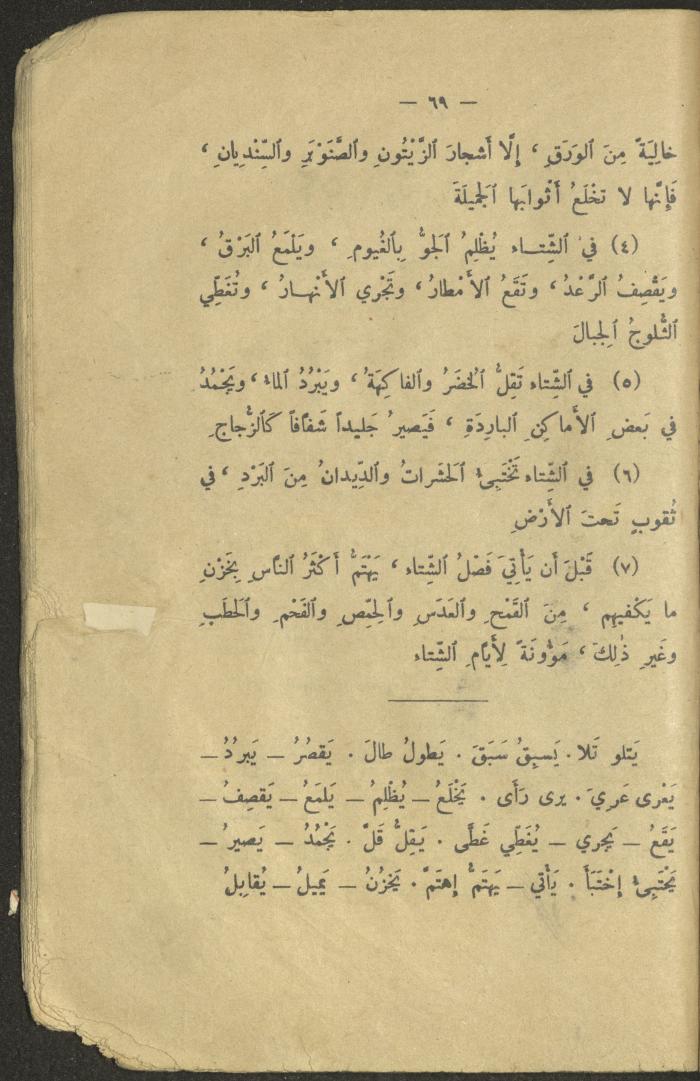 — ٦٩ —
خالِيَةً مِنَ ٱلوَرَقِ ، إِلَّا أَشجارَ ٱلزَّيْتُونِ وٱلصَّنَوْبَرِ وٱلسِّنْدِيانِ ،
فَإِنَّها لا تَخْلَعُ أَثْوابَها ٱلجَمِيلَةَ
(٤) في ٱلشِّتاء يُظْلِمُ ٱلجَوُّ بِٱلغُيومِ ، ويَلْمَعُ ٱلبَرْقُ ،
ويَقْصِفُ ٱلرَّعْدُ ، وتَقَعُ ٱلأَمْطارُ ، وتَجْري ٱلأَنْهارُ ، وتُغَطِّي
ٱلثُّلوجُ ٱلجِبالَ
(٥) في ٱلشِّتاء تَقِلُّ ٱلخُضَرُ وٱلفاكِهَةُ ، ويَبْرُدُ ٱلماء ، ويَجْمُدُ
في بَعضِ ٱلأَماكِنِ ٱلبارِدَةِ ، فَيَصيرُ جَليداً شَفَّافاً كَٱلزُّجاجِ
(٦) في ٱلشِّتاء تَخْتَبِئُ ٱلحَشَراتُ وٱلدِّيدانُ مِنَ ٱلبَرْدِ ، في
ثُقوبٍ تَحتَ ٱلأَرْضِ
(٧) قَبْلَ أَن يَأْتِيَ فَصْلُ ٱلشِّتاء ، يَهْتَمُّ أَكْثَرُ ٱلنَّاسِ بِخَزْنِ
ما يَكْفيهِم ، مِنَ ٱلقَمْحِ وٱلعَدَسِ وٱلحِمَّصِ وٱلفَحْمِ وٱلحَطَبِ
وغَيرِ ذٰلِكَ ، مَؤُونَةً لِأَيَّامِ ٱلشِّتاء
يَتلو تَلا . يَسبِقُ سَبَقَ . يَطولُ طالَ . يَقصُرُ — يَبرُدُ —
يَعْرى عَرِيَ . يرى رَأَى . يَخْلَعُ — يُظْلِمُ — يَلمَعُ — يَقصِفُ —
يَقَعُ — يَجري — يُغَطِّي غَطَّى . يَقِلُّ قَلَّ . يَجْمُدُ — يَصيرُ —
يَخْتَبِئُ إِخْتَبَأَ . يَأْتي — يَهتَمُّ إِهتَمَّ . يَخزُنُ — يَميلُ — يُقابِلُ